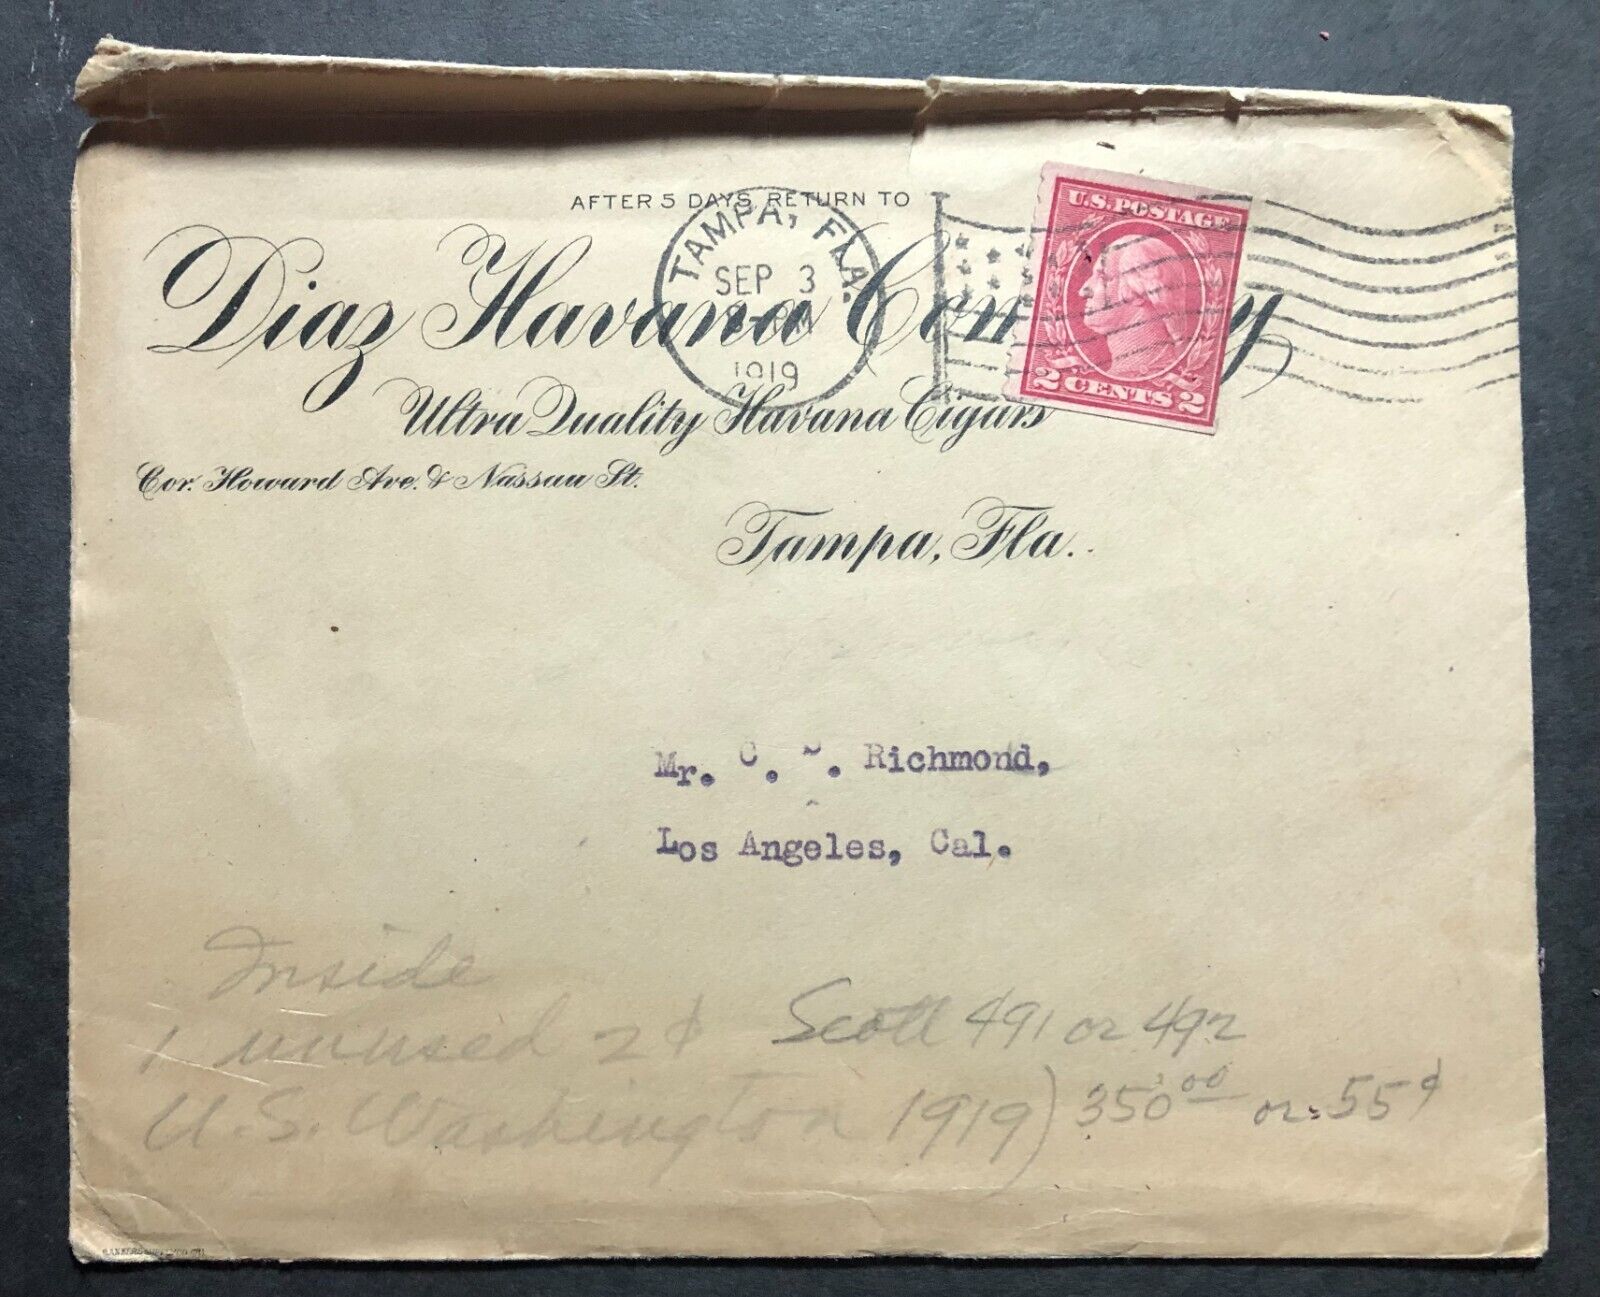 AFTER 5 DAYS RETURN TO
Diaz Havana Com y
Ultra Quality Havana Cigars
Cor. Howard Ave. & Nassau St.
Tampa, Fla.
TAMPA, FLA.
SEP 3
1919
U.S. POSTAGE
2 CENTS 2
Mr. C. . Richmond,
Los Angeles, Cal.
Inside
1 unused 2¢ Scott 491 or 492
U.S. Washington 1919) 350.00 or .55¢